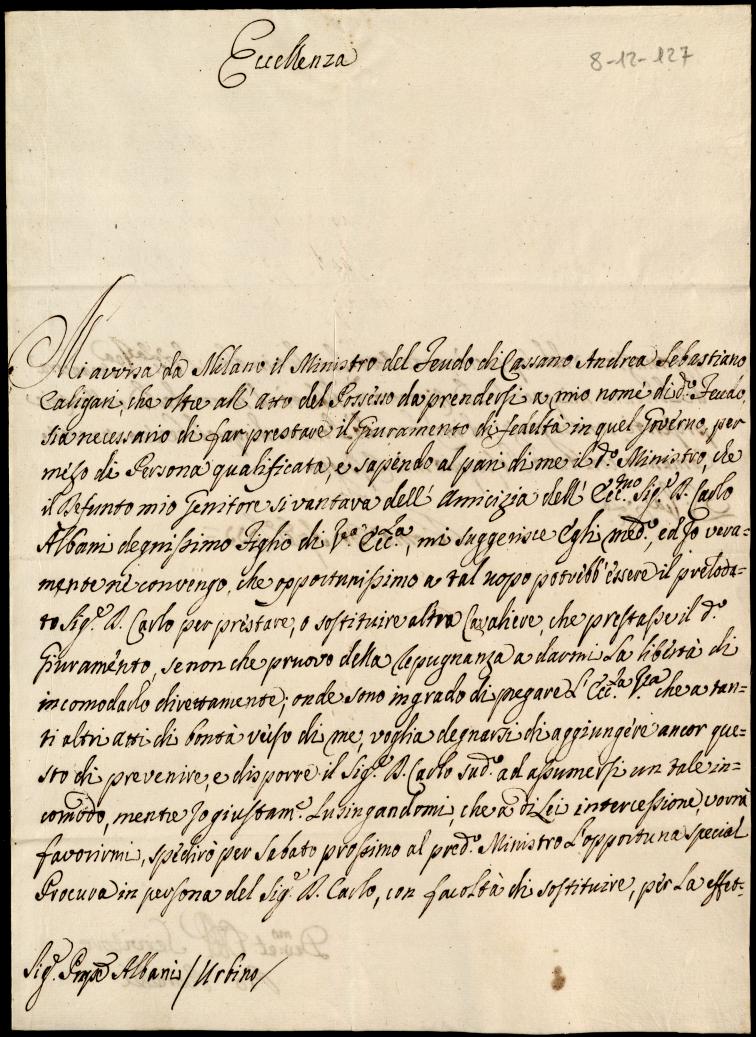 Eccellenza
8-12-127
Mi avvisa da Milano il Ministro del Feudo di Cassano Andrea Sebastiano
Caligari, che oltre all' Atto del Possesso da prendersi a mio nome di d.º Feudo,
sia necessario di far prestare il Giuramento di fedeltà in quel Governo, per
mezo di Persona qualificata, e sapendo al pari di me il d.º Ministro, che
il Defunto mio Genitore si vantava dell' Amicizia dell' Ecc.mo Sig.r D. Carlo
Albani degnissimo Figlio di V.ª Ecc.ª, mi suggerisce Egli med.º, ed Io vera-
mente nè convengo, che opportunissimo a tal uopo potrebb' essere il preloda-
to Sig.r D. Carlo per prestare, o sostituire altro Cavaliere, che prestasse il d.º
Giuramento, se non che pruovo della repugnanza a darmi la libertà di
incomodarlo direttamente; onde sono in grado di pregare l' Ecc.za V.ra che a tan-
ti altri atti di bontà verso di me, voglia degnarsi di aggiungere ancor que-
sto di prevenire, e disporre il Sig.r D. Carlo sud.º ad assumersi un tale in-
comodo, mentre Io giustam.e Lusingandomi, che a di Lei intercessione, vorrà
favorirmi, spedirò per Sabato prossimo al pred.º Ministro l'opportuna special
Procura in persona del Sig.r D. Carlo, con facoltà di sostituire, per la effet-
Sig.r Albani / Urbino /